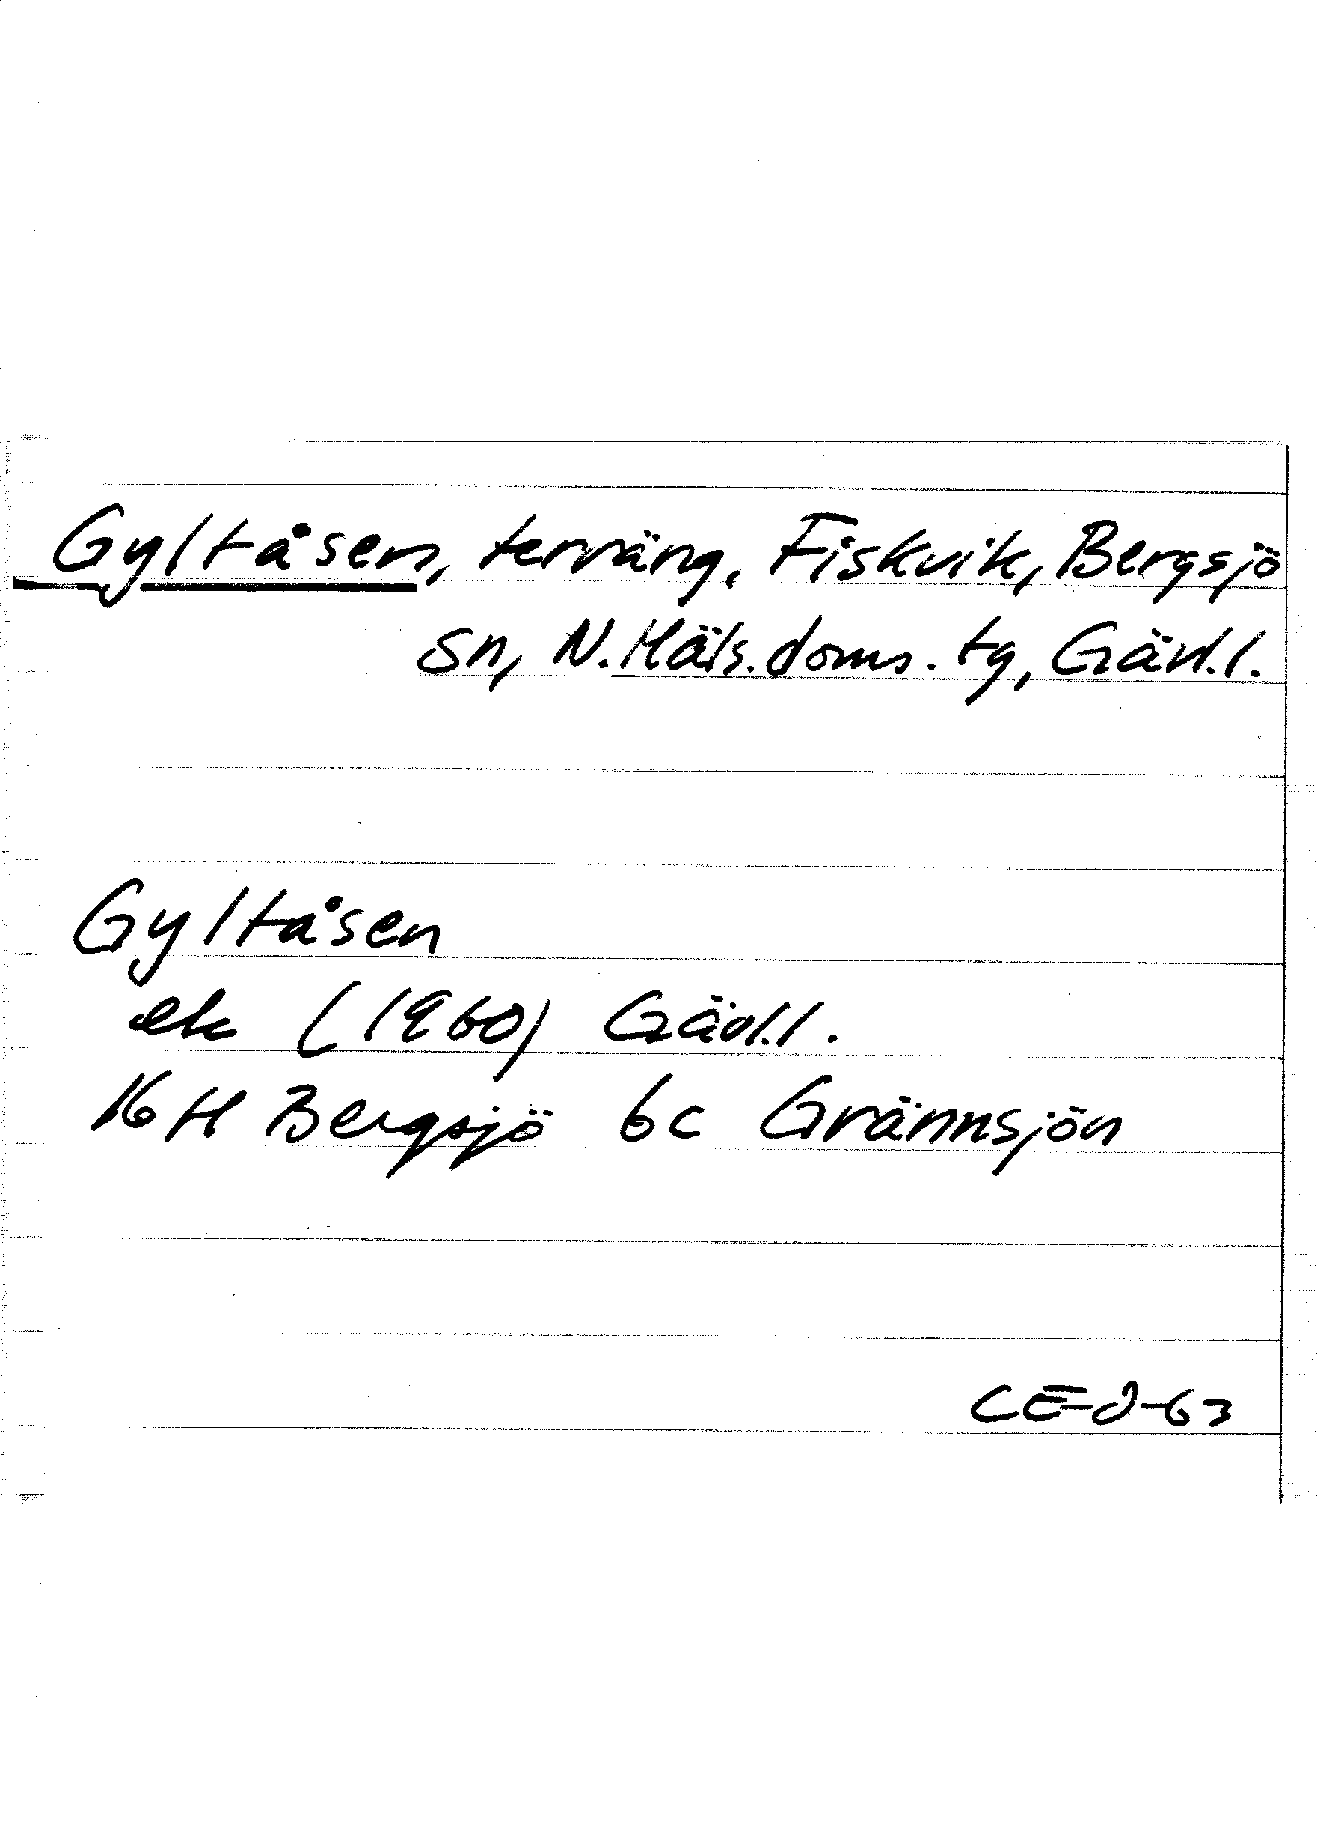 Gyltåsen, terräng, Fiskvik, Bergsjö
sn, N. Häls. doms. tg, Gävl. l.
Gyltåsen
ek (1960) Gävl. l.
16 H Bergsjö 6c Grännsjön